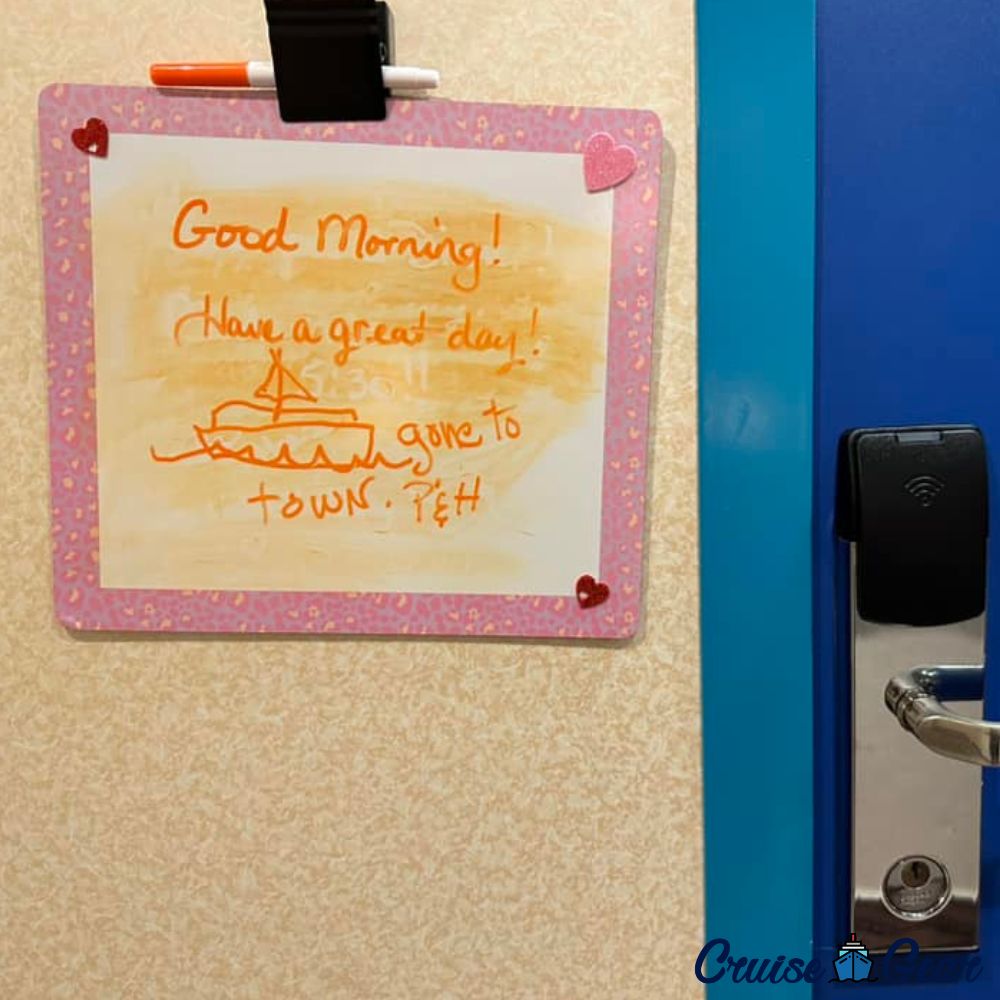 Good Morning!
Have a great day!
gone to
TOWN. P&H
Cruise